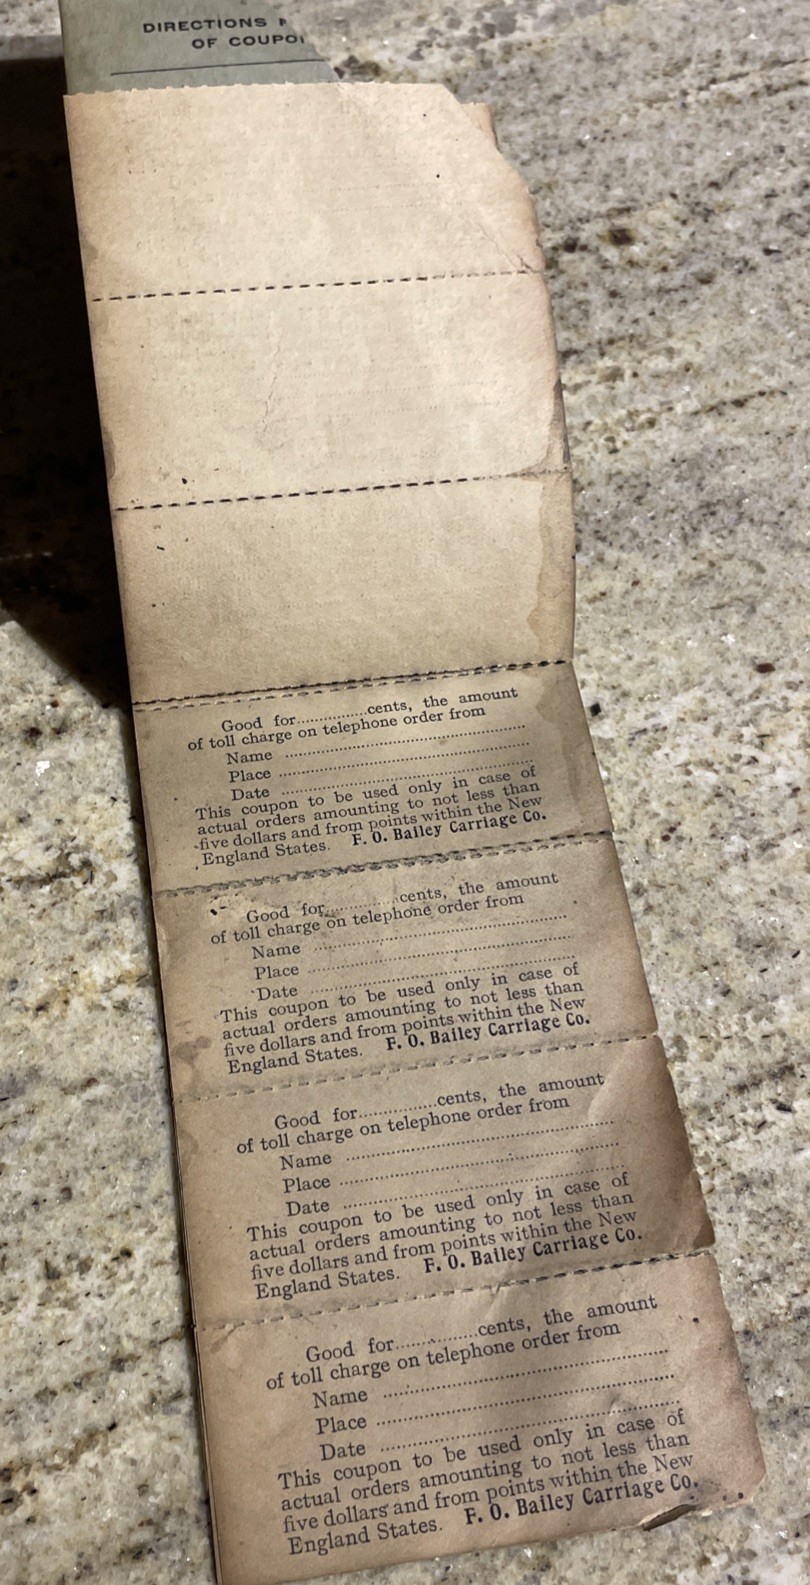 DIRECTIONS
OF
Good for...............cents, the amount
of toll charge on telephone order from
Name
Place
Date
This coupon to be used only in case of
actual orders amounting to not less than
five dollars and from points within the New
England States. F. O. Bailey Carriage Co.
Good for...............cents, the amount
of toll charge on telephone order from
Name
Place
Date
This coupon to be used only in case of
actual orders amounting to not less than
five dollars and from points within the New
England States. F. O. Bailey Carriage Co.
Good for...............cents, the amount
of toll charge on telephone order from
Name
Place
Date
This coupon to be used only in case of
actual orders amounting to not less than
five dollars and from points within the New
England States. F. O. Bailey Carriage Co.
Good for...............cents, the amount
of toll charge on telephone order from
Name
Place
Date
This coupon to be used only in case of
actual orders amounting to not less than
five dollars and from points within the New
England States. F. O. Bailey Carriage Co.